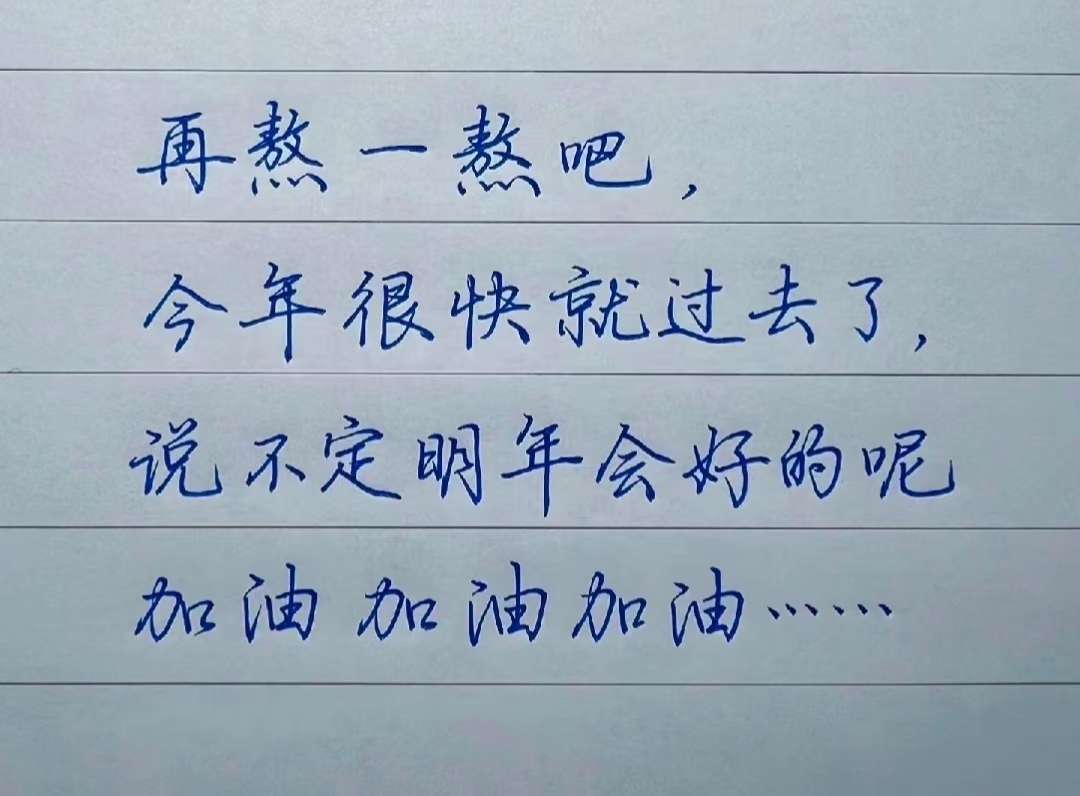 再熬一熬吧，
今年很快就过去了，
说不定明年会好的呢
加油加油加油……